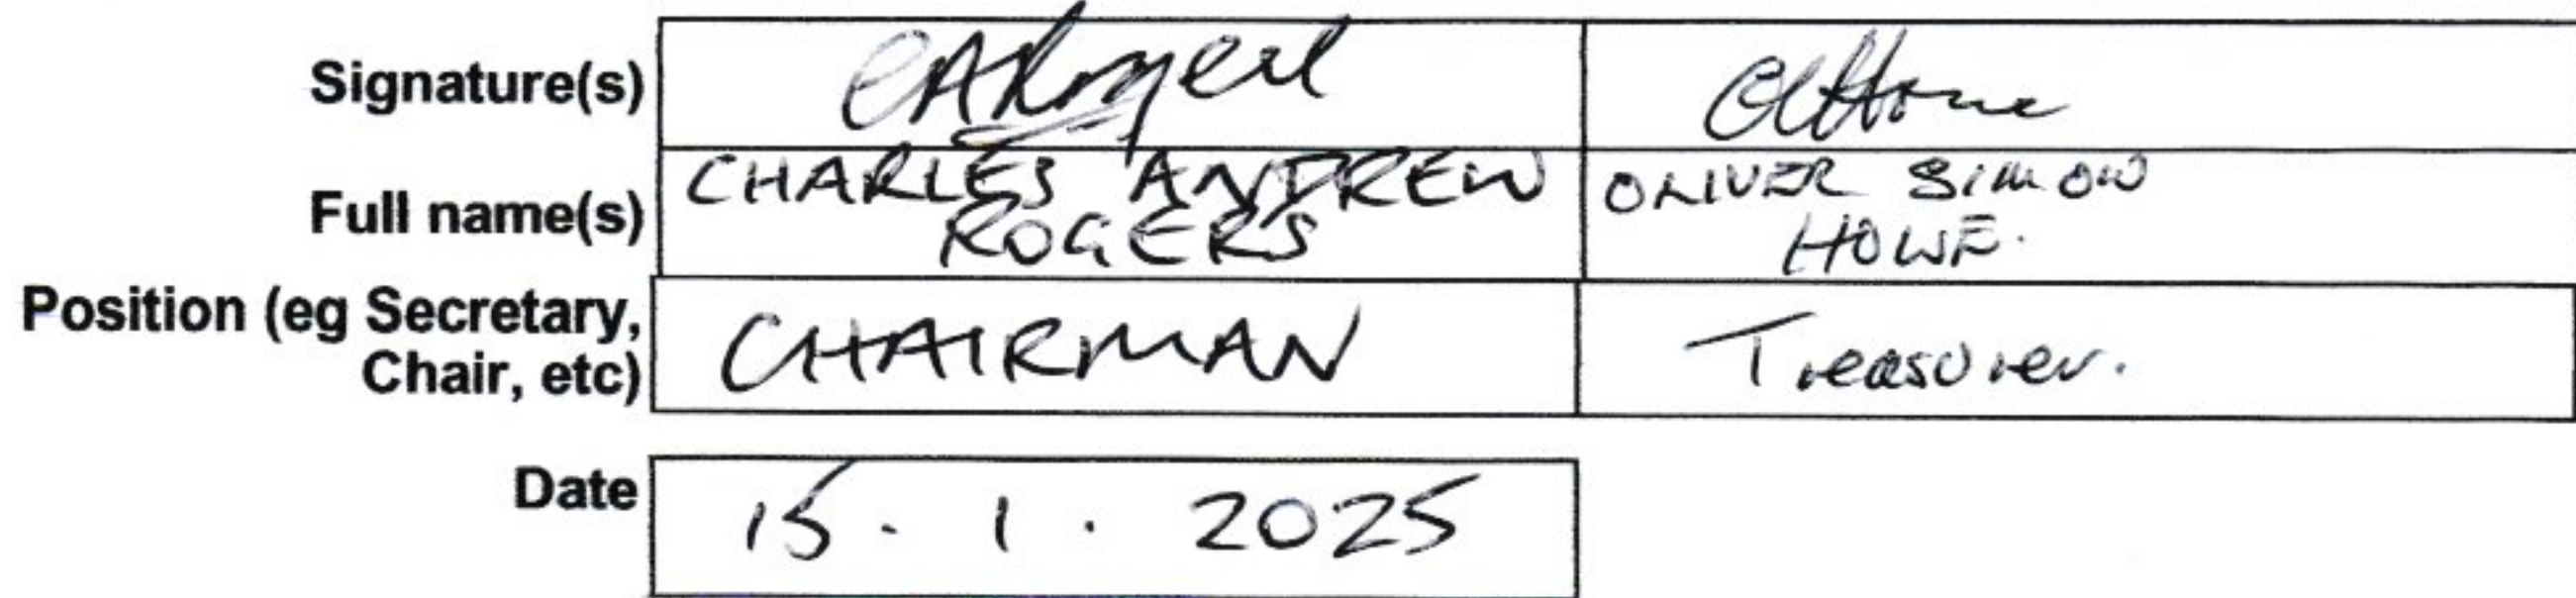 Signature(s)
Full name(s) CHARLES ANDREW ROGERS OLIVER SIMON HOWE.
Position (eg Secretary, Chair, etc) CHAIRMAN Treasurer.
Date 15 . 1 . 2025